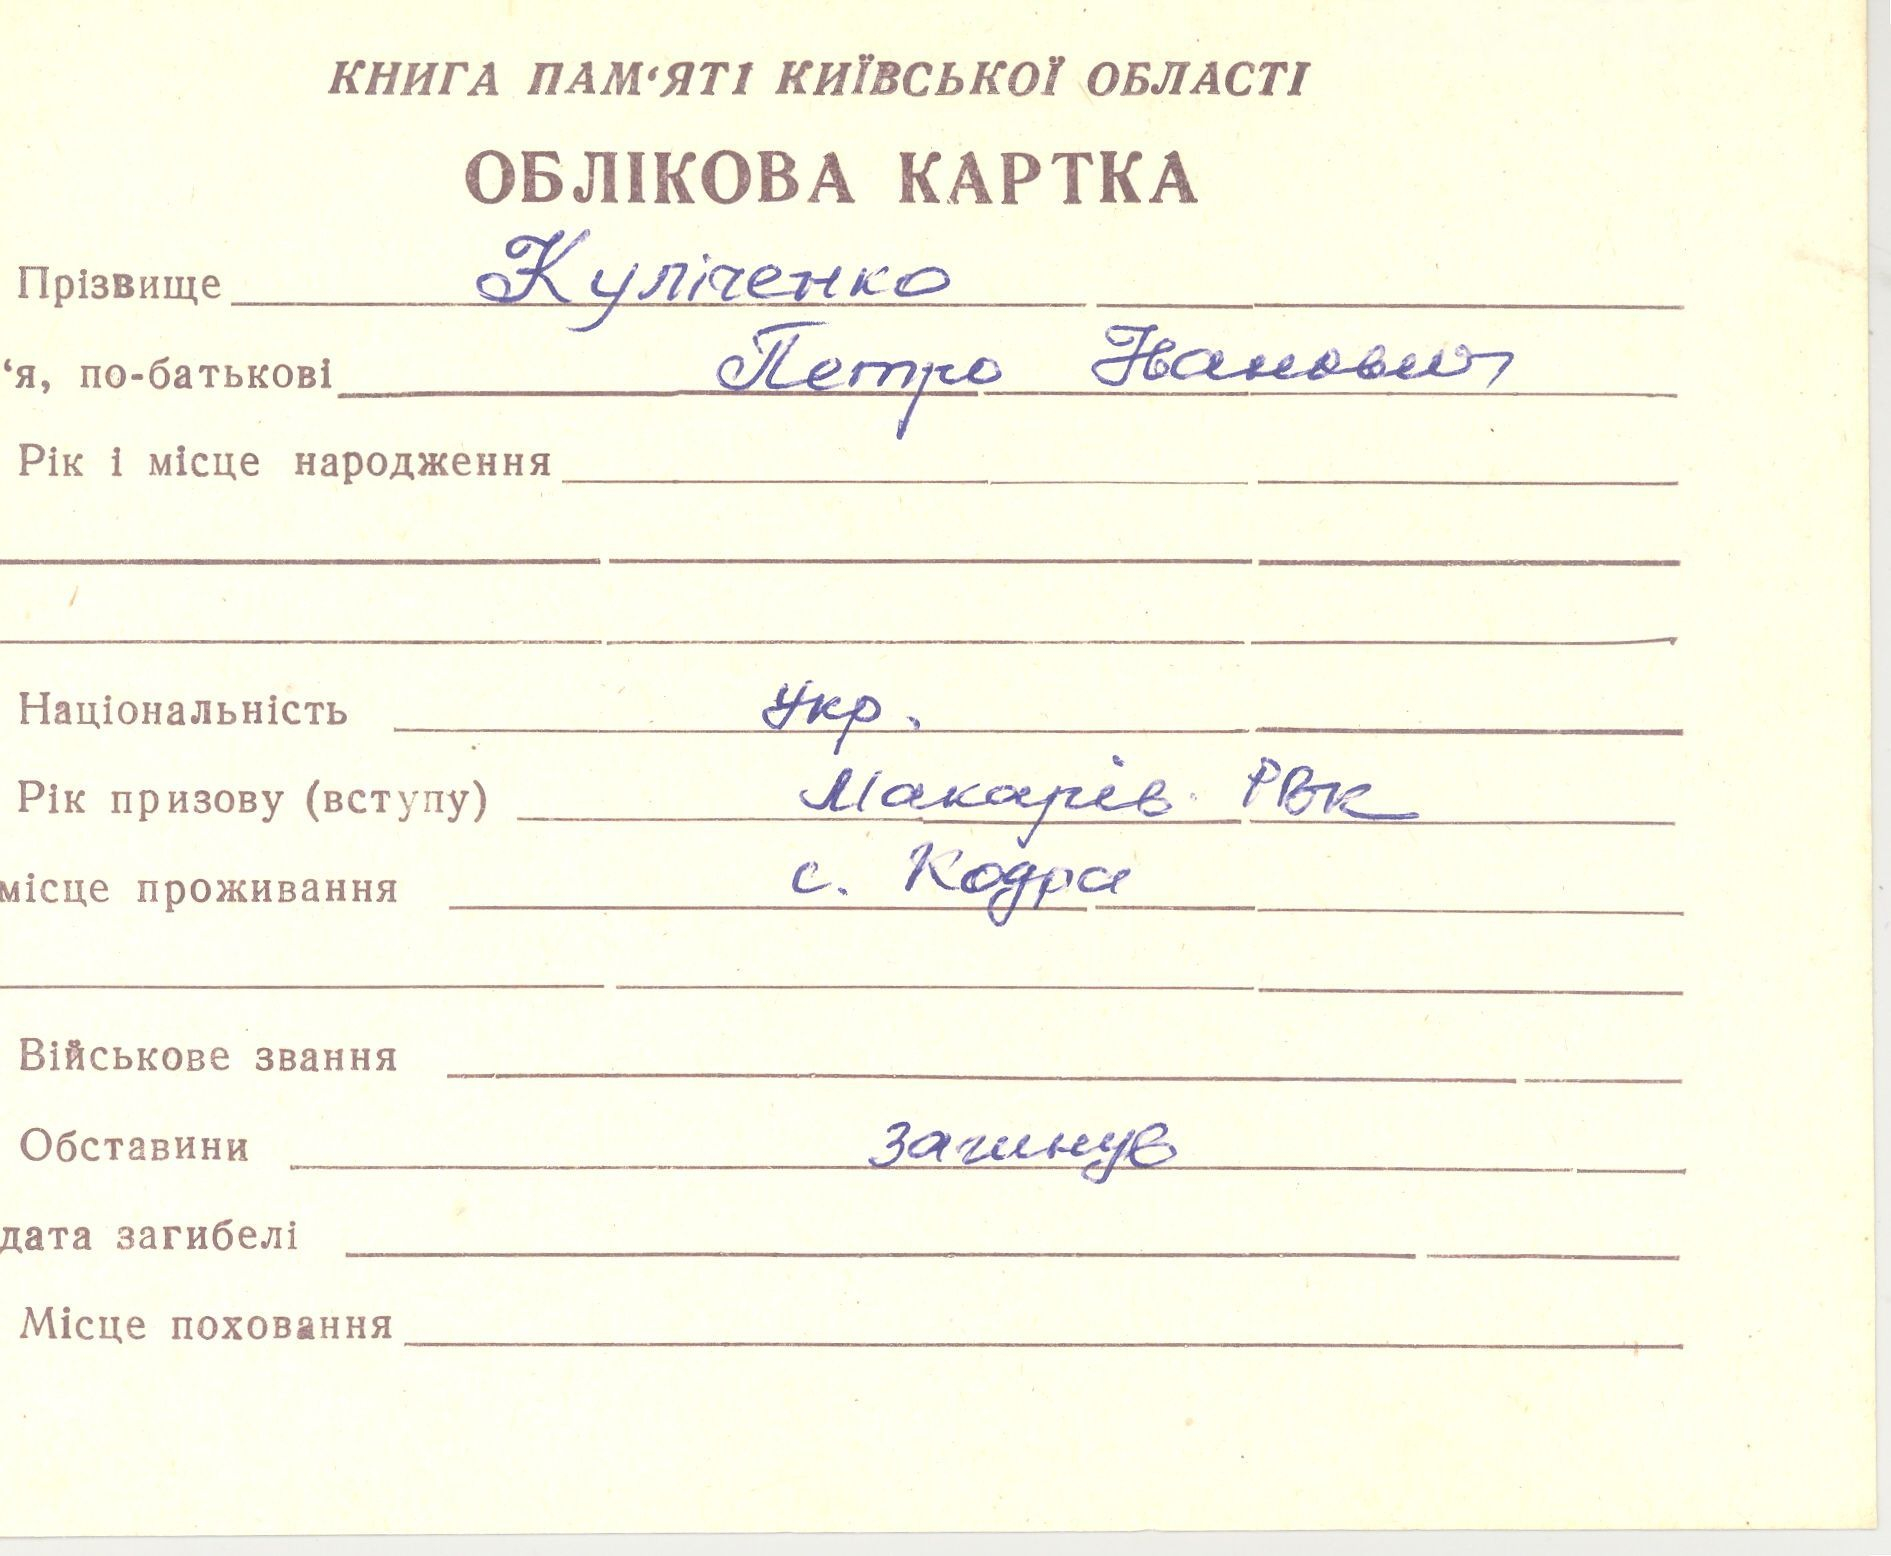 КНИГА ПАМ‘ЯТІ КИЇВСЬКОЇ ОБЛАСТІ
ОБЛІКОВА КАРТКА
Прізвище Куліченко
‘я, по-батькові Петро Іванович
Рік і місце народження
Національність Укр.
Рік призову (вступу) Макарів. РВК
місце проживання с. Кодра
Військове звання
Обставини загинув
дата загибелі
Місце поховання